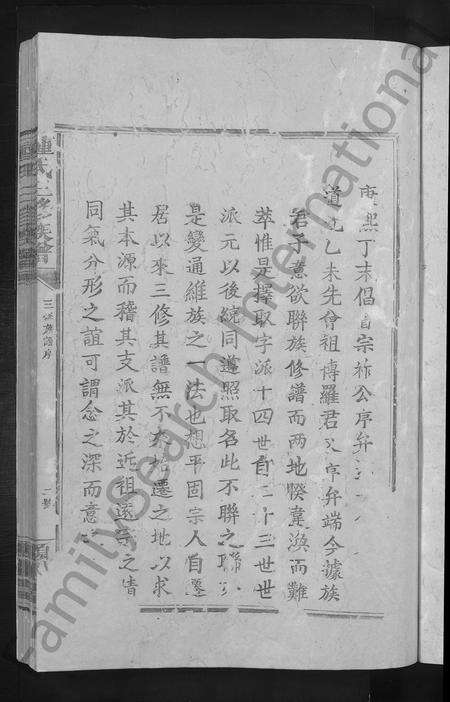 康熙丁未倡首宗祚公序弁
道光乙未先曾祖傳羅君公序弁端今據族
君子意欲聯族修譜而两地睽違渙而難
萃惟是擇取字派十四世自二十三世世
派元以後統同遵照取名此不聯之聯
是變通維族之一法也想平固宗人自遷
居以來三修其譜無不於始遷之地以求
其本源而稽其支派其於近祖遠宗之情
同氣分形之誼可謂念之深而意
鍾氏三修族譜
三修族譜序
二號
FamilySearch International